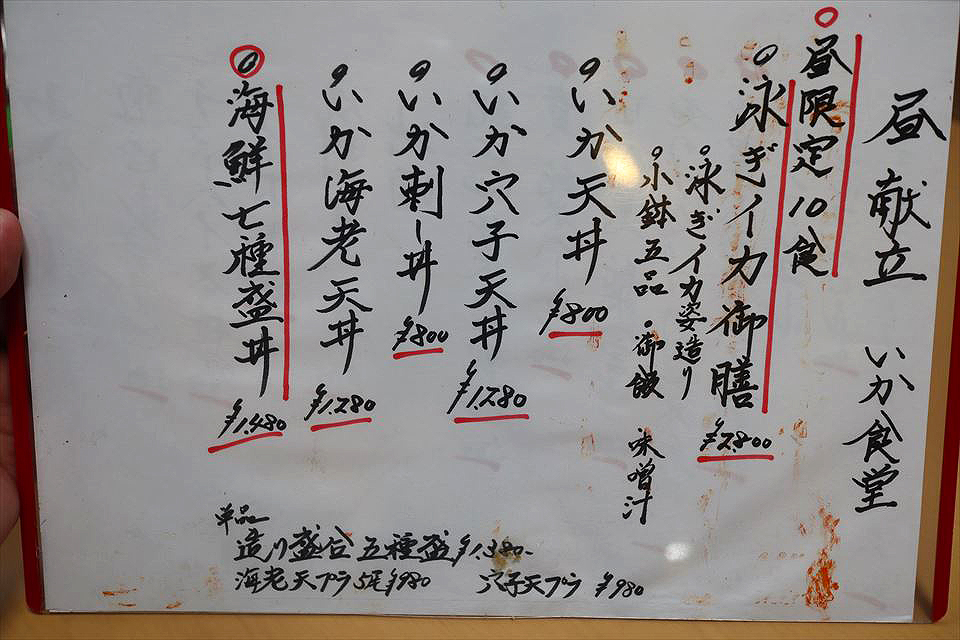 昼献立 いか食堂
昼限定10食
泳ぎイカ御膳 ¥2,800
泳ぎイカ姿造り
小鉢五品・御飯 味噌汁
いか天丼 ¥800
いか穴子天丼 ¥1,280
いか刺し丼 ¥800
いか海老天丼 ¥1,280
海鮮七種盛丼 ¥1,480
単品
造り盛合 五種盛 ¥1,380-
海老天プラ5尾 ¥980 穴子天プラ ¥980